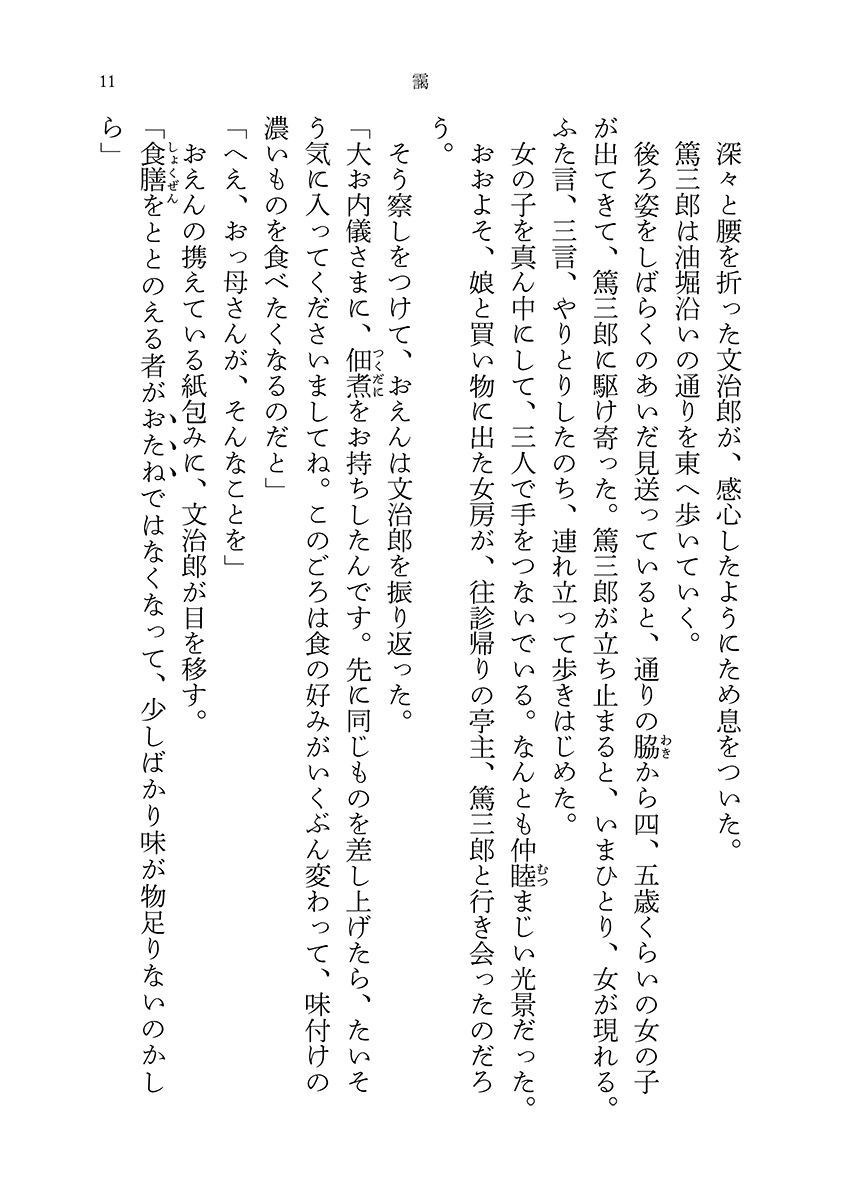 11
靄
深々と腰を折った文治郎が、感心したようにため息をついた。
篤三郎は油堀沿いの通りを東へ歩いていく。
後ろ姿をしばらくのあいだ見送っていると、通りの脇から四、五歳くらいの女の子
わき
が出てきて、篤三郎に駆け寄った。篤三郎が立ち止まると、いまひとり、女が現れる。
ふた言、三言、やりとりしたのち、連れ立って歩きはじめた。
女の子を真ん中にして、三人で手をつないでいる。なんとも仲睦まじい光景だった。
むつ
おおよそ、娘と買い物に出た女房が、往診帰りの亭主、篤三郎と行き会ったのだろ
う。
そう察しをつけて、おえんは文治郎を振り返った。
「大お内儀さまに、佃煮をお持ちしたんです。先に同じものを差し上げたら、たいそ
つくだに
う気に入ってくださいましてね。このごろは食の好みがいくぶん変わって、味付けの
濃いものを食べたくなるのだと」
「へえ、おっ母さんが、そんなことを」
おえんの携えている紙包みに、文治郎が目を移す。
「食膳をととのえる者がおたねではなくなって、少しばかり味が物足りないのかし
しょくぜん
ら」